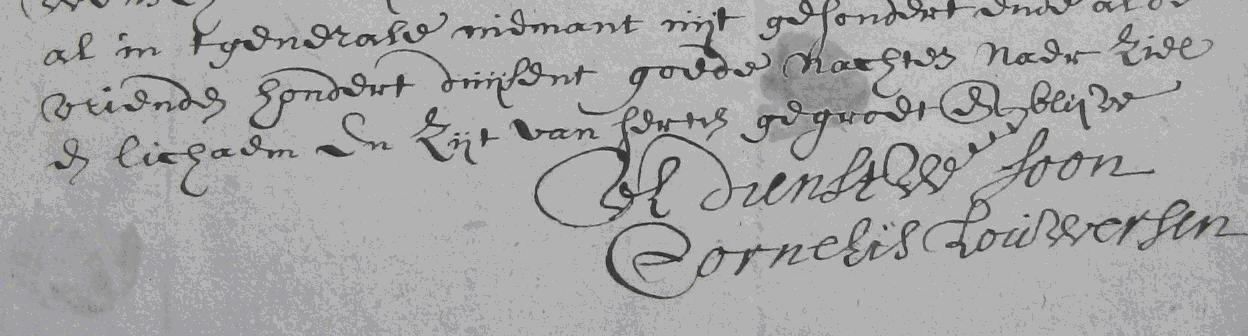 al in tgenerale niemant uijt gesondert ende al de
vrienden hondert duijsent goede nachten naer ziel
en lichaem En zijt van herten gegroet En blijve
UE dienstWe soon
Cornelis Louwersen